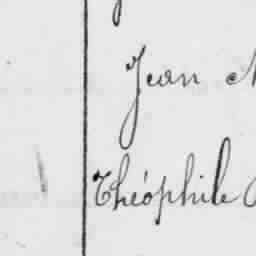 Jean
Théophile